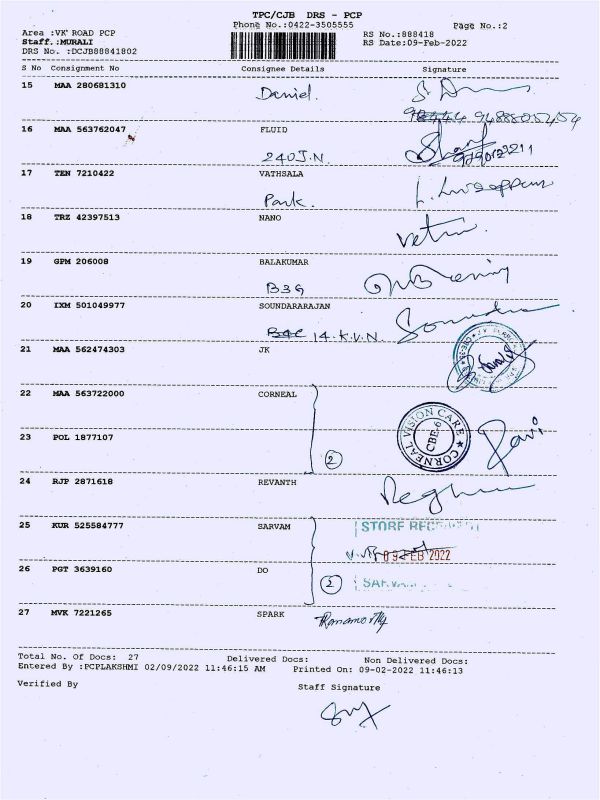 TPC/CJB DRS - PCP
Phone No.:0422-3505555 Page No.:2
Area :VK' ROAD PCP RS No.:888418
Staff.:MURALI RS Date:09-Feb-2022
DRS No. :DCJB88841802
S No Consignment No Consignee Details Signature
15 MAA 280681310
Daniel.
9488805454
16 MAA 563762047 FLUID
240 J.N.
17 TEN 7210422 VATHSALA
Park.
18 TRZ 42397513 NANO
19 GPM 206008 BALAKUMAR
B3G
20 IXM 501049977 SOUNDARARAJAN
14.K.V.N.
21 MAA 562474303 JK
22 MAA 563722000 CORNEAL
CORNEAL VISION CARE
CBE-6
Ravi
23 POL 1877107
2
24 RJP 2871618 REVANTH
25 KUR 525584777 SARVAM
STORE
09 FEB 2022
26 PGT 3639160 DO
2
27 MVK 7221265 SPARK
Total No. Of Docs: 27 Delivered Docs: Non Delivered Docs:
Entered By :PCPLAKSHMI 02/09/2022 11:46:15 AM Printed On: 09-02-2022 11:46:13
Verified By Staff Signature